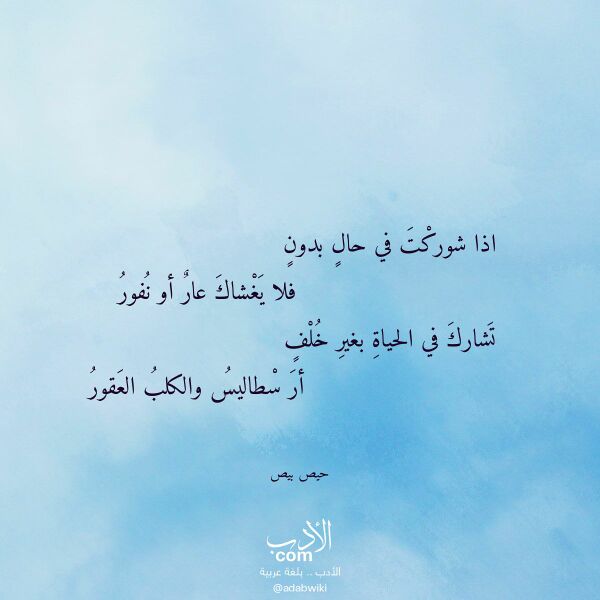 اذا شوركْتَ في حالٍ بدونٍ
فلا يَغْشاكَ عارٌ أو نُفورُ
تَشاركَ في الحياةِ بغيرِ خُلْفٍ
أرَ سْطاليسُ والكلبُ العَقورُ
حيص بيص
الأدب
com
الأدب .. بلغة عربية
@adabwiki